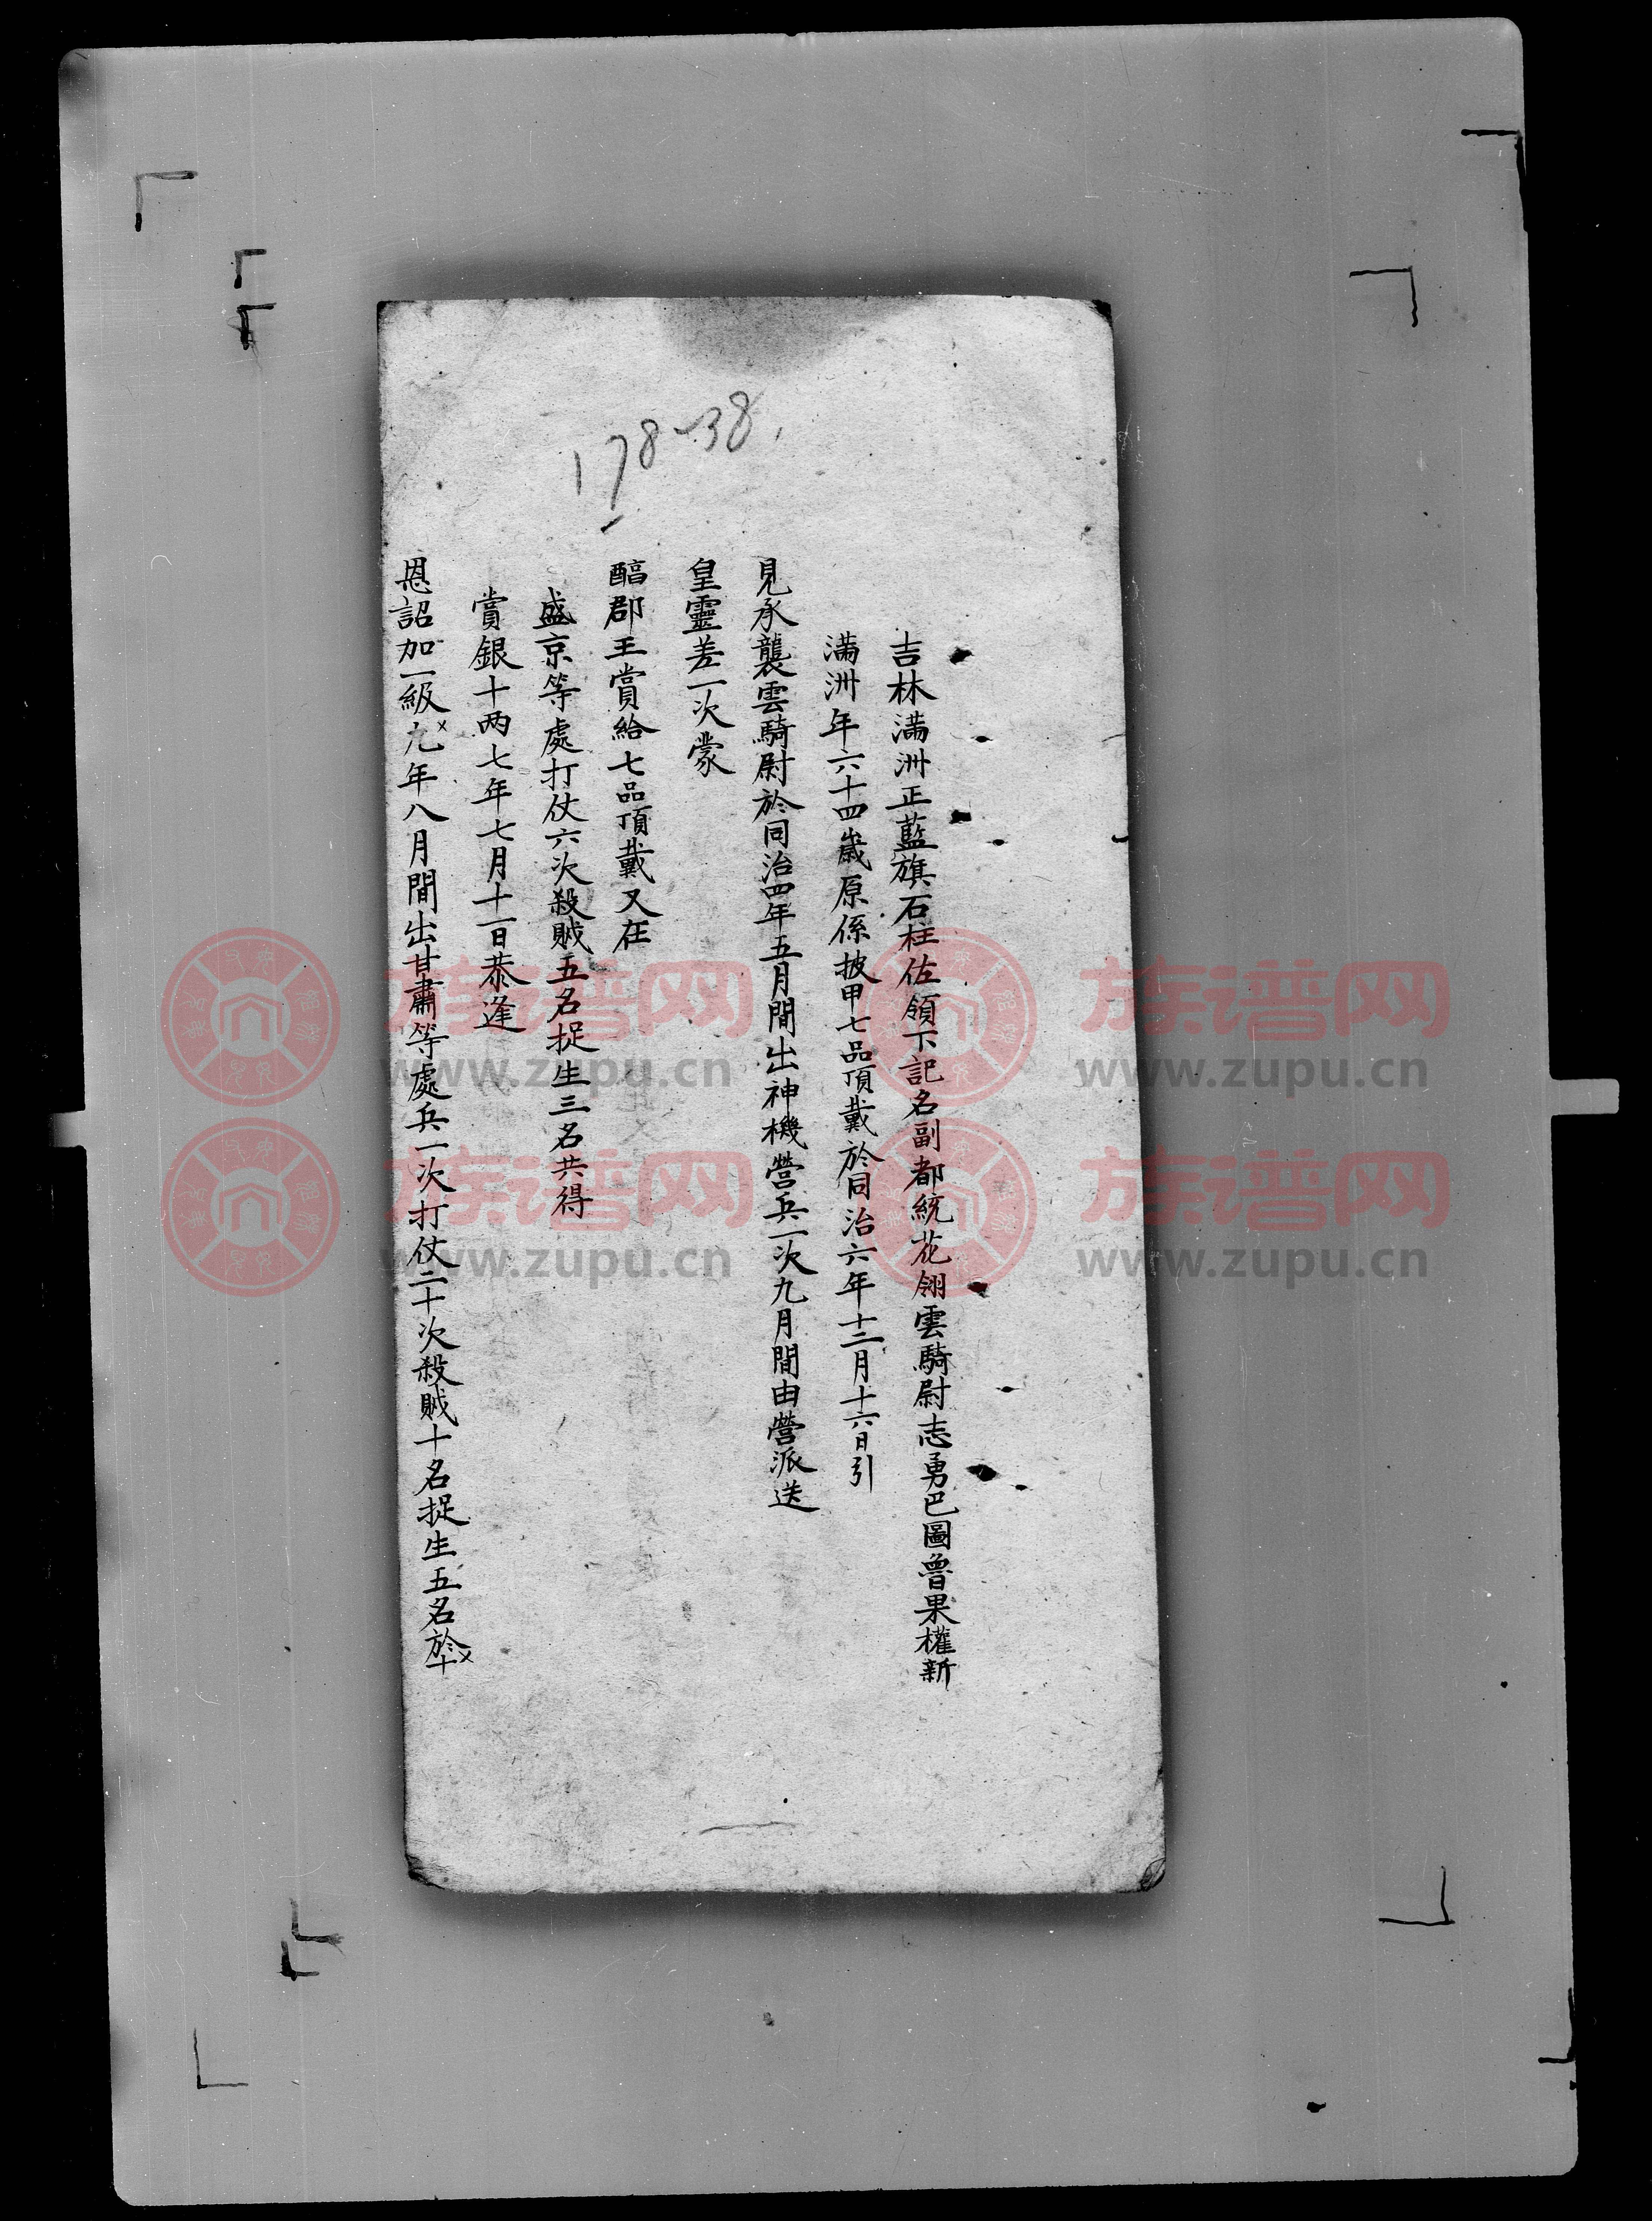 178-38
吉林滿洲正藍旗石柱佐領下記名副都統花翎雲騎尉志勇巴圖魯果權新
滿洲年六十四歲原係披甲七品頂戴於同治六年十二月十六日引
見承襲雲騎尉於同治四年五月間出神機營兵一次九月間由營派送
皇靈差一次蒙
醕郡王賞給七品頂戴又在
盛京等處打仗六次殺賊五名捉生三名共得
賞銀十两七年七月十一日恭逢
恩詔加一級九年八月間出甘肅等處兵一次打仗二十次殺賊十名捉生五名於十
族谱网
www.zupu.cn
族谱网
www.zupu.cn
族谱网
www.zupu.cn
族谱网
www.zupu.cn